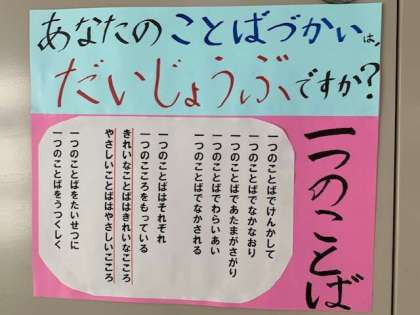 あなたのことばづかいは、
だいじょうぶですか?
一つのことば
一つのことばでけんかして
一つのことばでなかなおり
一つのことばであたまがさがり
一つのことばでわらいあい
一つのことばでなかされる
一つのことばはそれぞれ
一つのこころをもっている
きれいなことばはきれいなこころ
やさしいことばはやさしいこころ
一つのことばをたいせつに
一つのことばをうつくしく